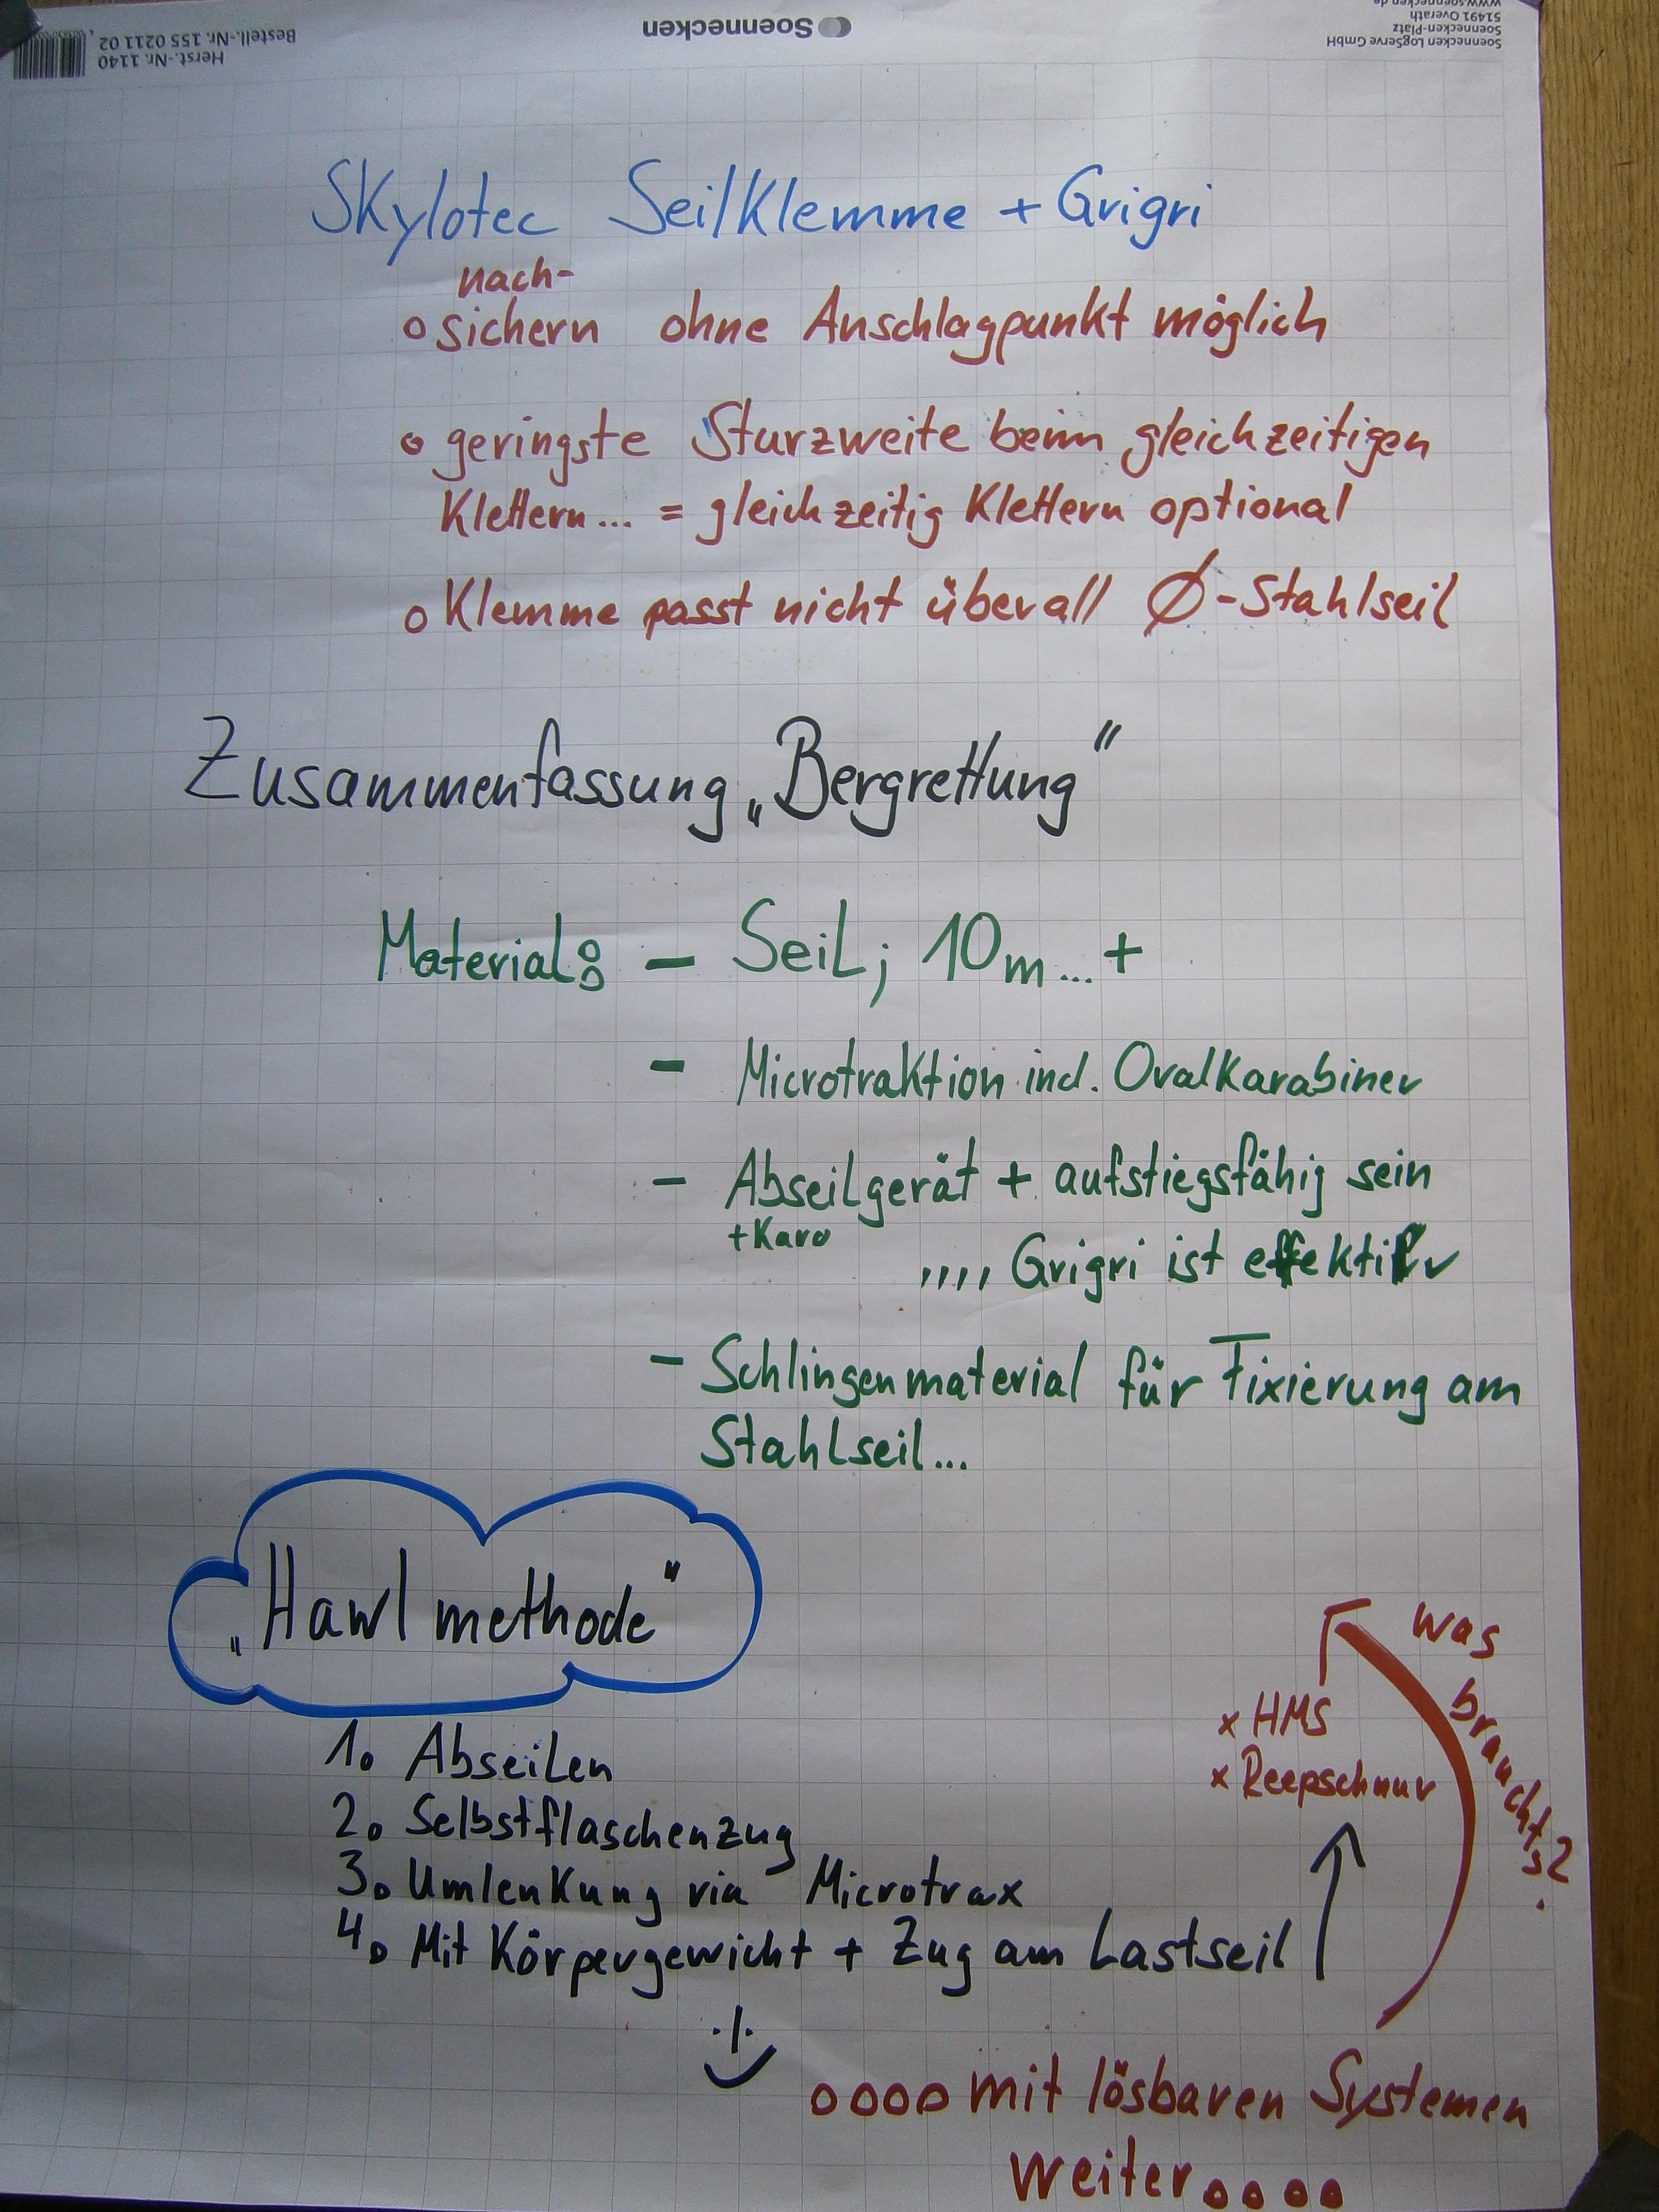 Soennecken LogServe GmbH
Soennecken-Platz
51491 Overath
www.soennecken.de
Soennecken
Herst.-Nr. 1140
Bestell.-Nr. 155 0211 02
SKylotec SeilKlemme + Grigri
nach-
o sichern ohne Anschlagpunkt möglich
o geringste Sturzweite beim gleichzeitigen
Klettern... = gleichzeitig Klettern optional
o Klemme passt nicht überall Ø-Stahlseil
Zusammenfassung „Bergrettung"
Material: - Seil; 10m...+
- Microtraktion incl. OvalKarabiner
- Abseilgerät + aufstiegsfähig sein
+Karo
,,,, Grigri ist effektiv
- Schlingenmaterial für Fixierung am
Stahlseil...
„Hawlmethode"
1. Abseilen
2. Selbstflaschenzug
3. UmlenKung via Microtrax
4. Mit Körpergewicht + Zug am Lastseil
:-)
was brauchts?
x HMS
x Reepschnur
.... mit lösbaren Systemen
weiter....